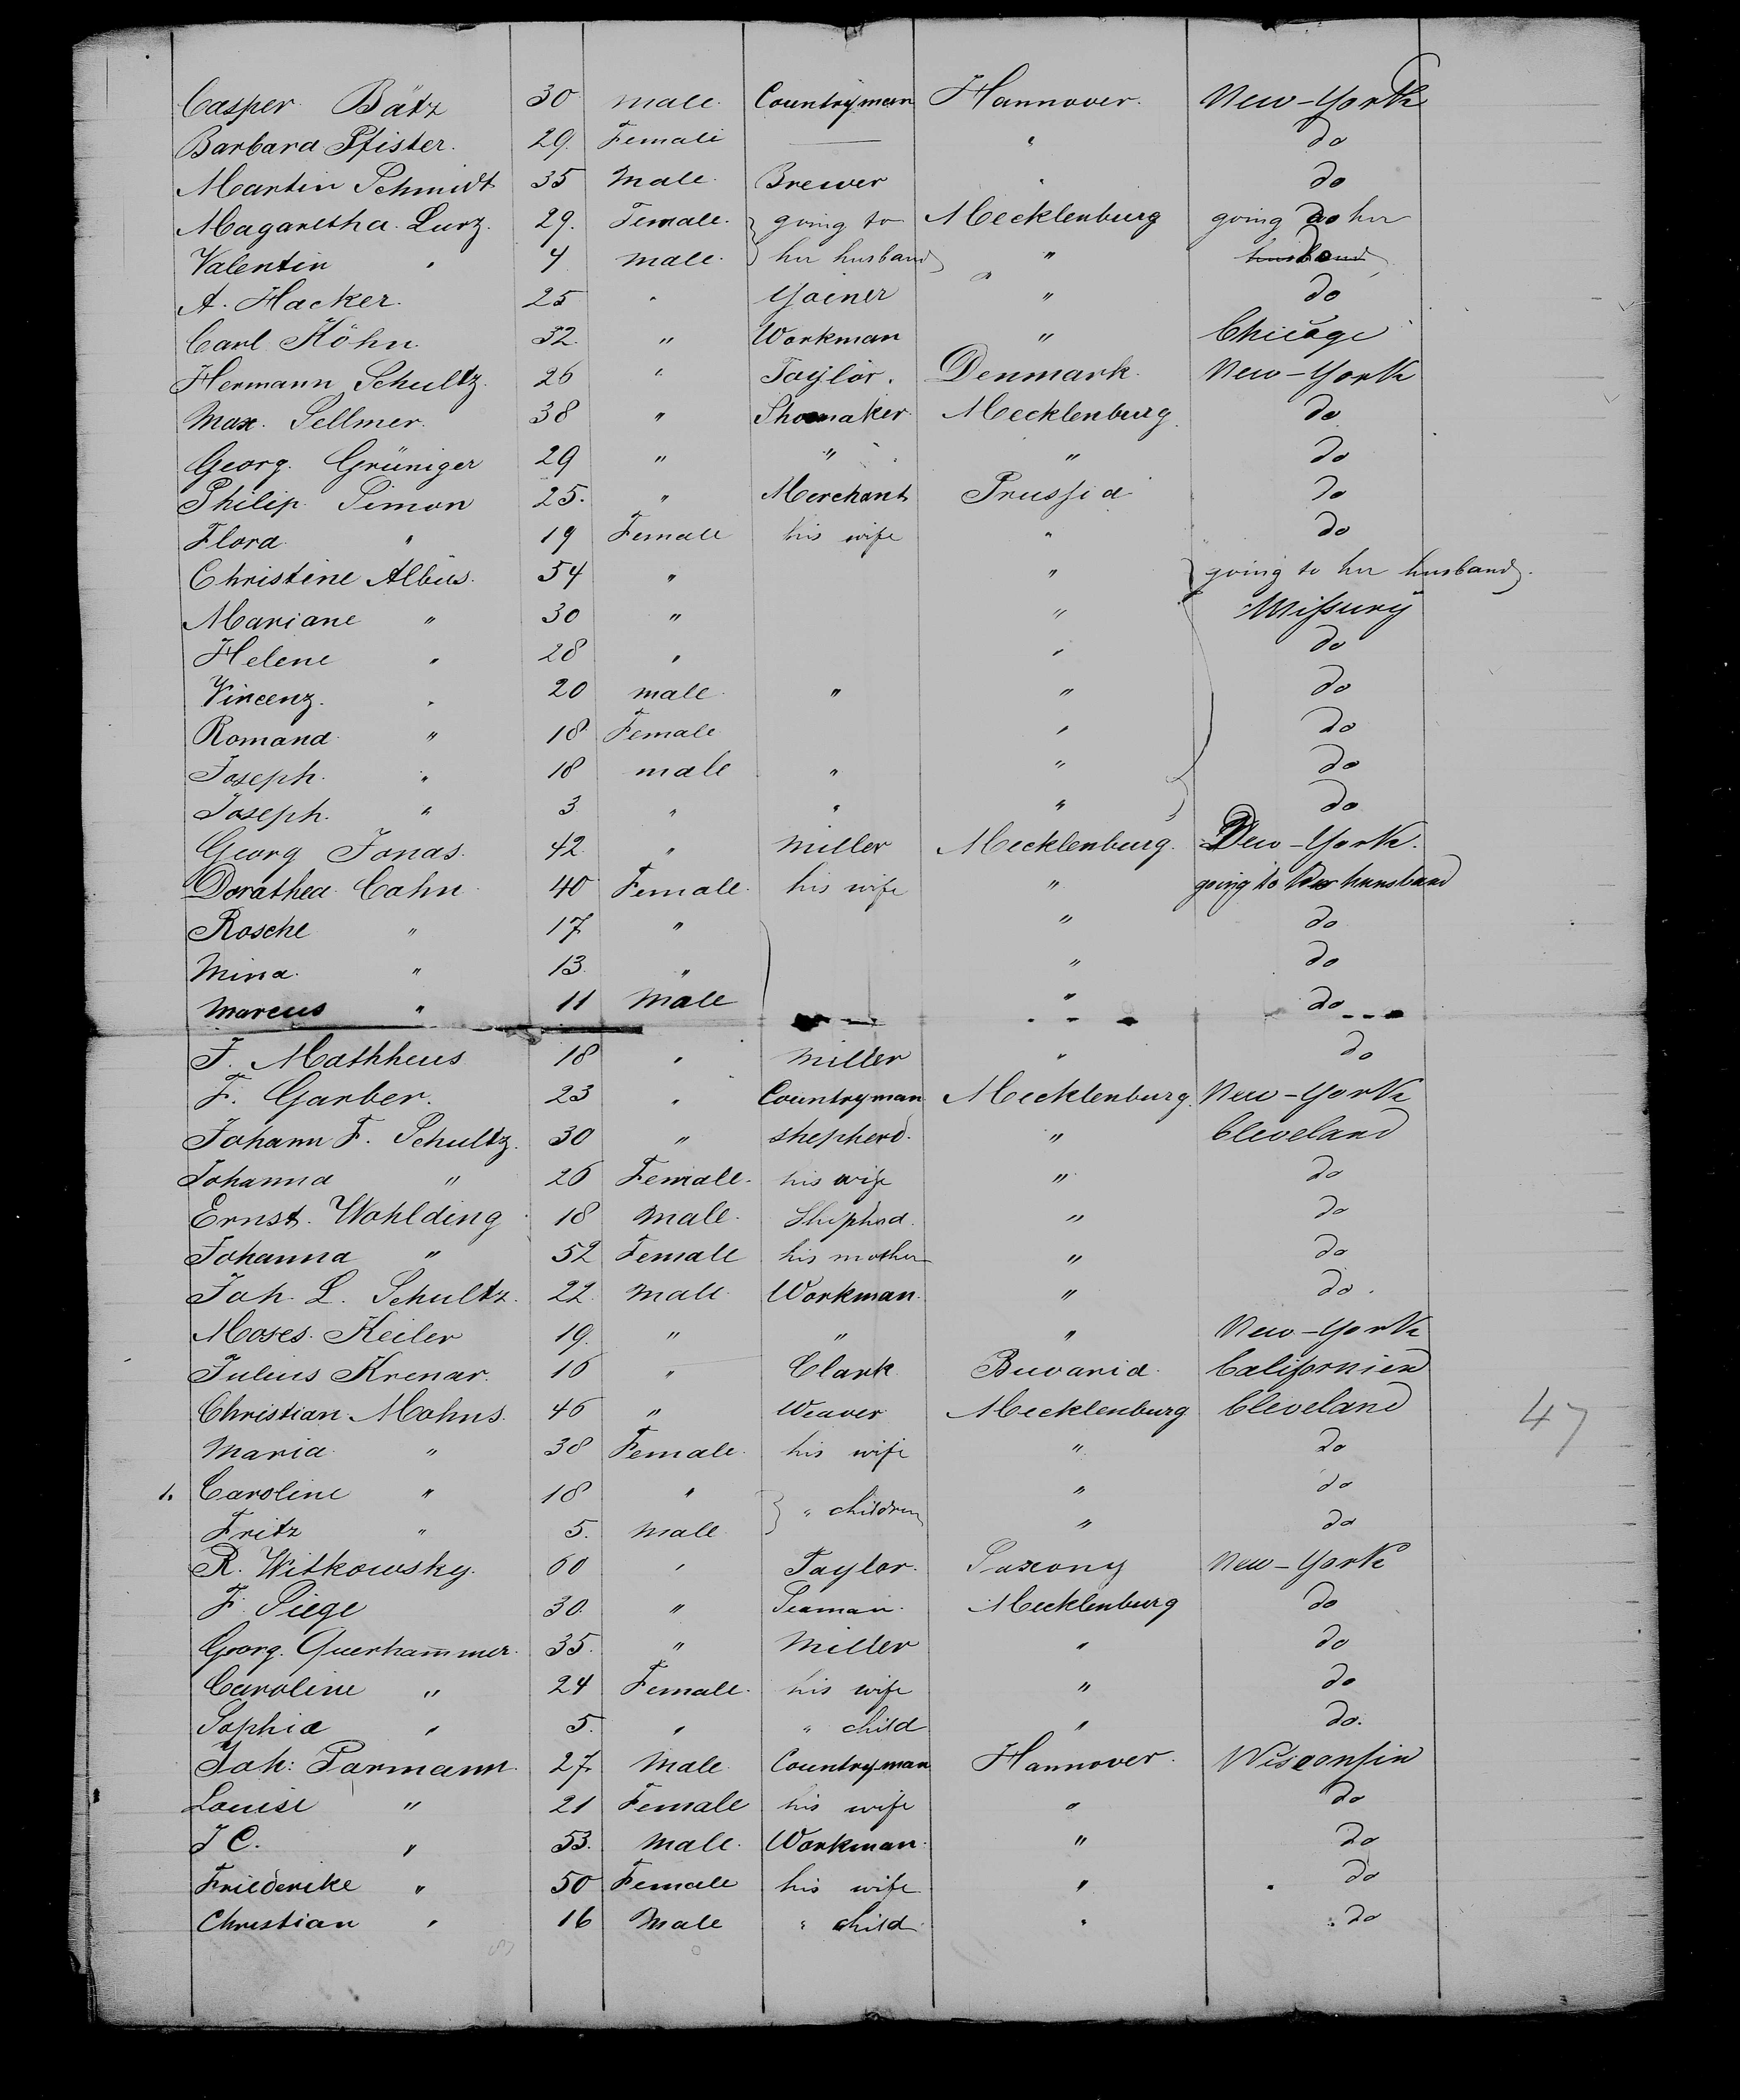 Casper Bätz 30 male Countryman Hannover New-York
Barbara Pfister. 29. Female — " do
Martin Schmidt 35 Male Brewer " do
Magaretha Lurz. 29. Female. going to Mecklenburg going to her
Valentin " 4 male. her husband " husband do
A. Hacker. 25 " Yoiner " do
Carl Höhn 32. " Workman " Chicago
Hermann Schultz. 26 " Taylor. Denmark. New-York
Max. Sellmer. 38 " Shoemaker Mecklenburg. do
Georg. Grüniger 29 " " " do
Philip Simon 25. " Merchant Prussia do
Flora " 19 Female his wife " do
Christine Albus. 54 " " going to her husband.
Mariane " 30 " " Missury
Helene " 28 " " do
Vincenz. " 20 male " " do
Romana " 18 Female " do
Joseph. " 18 male " " do
Joseph. " 3 " " " do
Georg Jonas. 42 " Miller Mecklenburg. New-York.
Dorathea Cahn 40 Female. his wife " going to her hunsband
Rosche " 17 " " do
Mina. " 13. " " do
Marcus " 11 Male " do
F. Mathheus 18 " Miller " do
F. Garber. 23 " Countryman Mecklenburg. New-York
Johann F. Schultz. 30 " shepherd. " Cleveland
Johanna " 26 Female. his wife " do
Ernst. Wohlding 18 Male. Shiphrd. " do
Johanna " 52 Female his mother " do
Joh. L. Schultz. 22. Male Workman. " do.
Moses. Keiler 19. " " " New-York
Julius Krenar. 16 " Clark Buvaria. Californien
Christian Mohns. 46 " Weaver Mecklenburg Cleveland
47
Maria " 38 Female. his wife " do
1. Caroline " 18 " " children " do
Fritz " 5. Male " do
R. Witkowsky. 60 " Taylor. Saxony New-York
F. Piege 30. " Seaman. Mecklenburg do
Georg. Querhammer. 35. " Miller " do
Caroline " 24 Female. his wife " do
Sophia " 5. " " child " do.
Joh: Parmann. 27 Male Countryman Hannover. Wisconsin
Louise " 21 Female his wife " do
J C. " 53. Male. Workman. " do
Friederike " 50 Female his wife " do
Christian " 16 Male " child " do